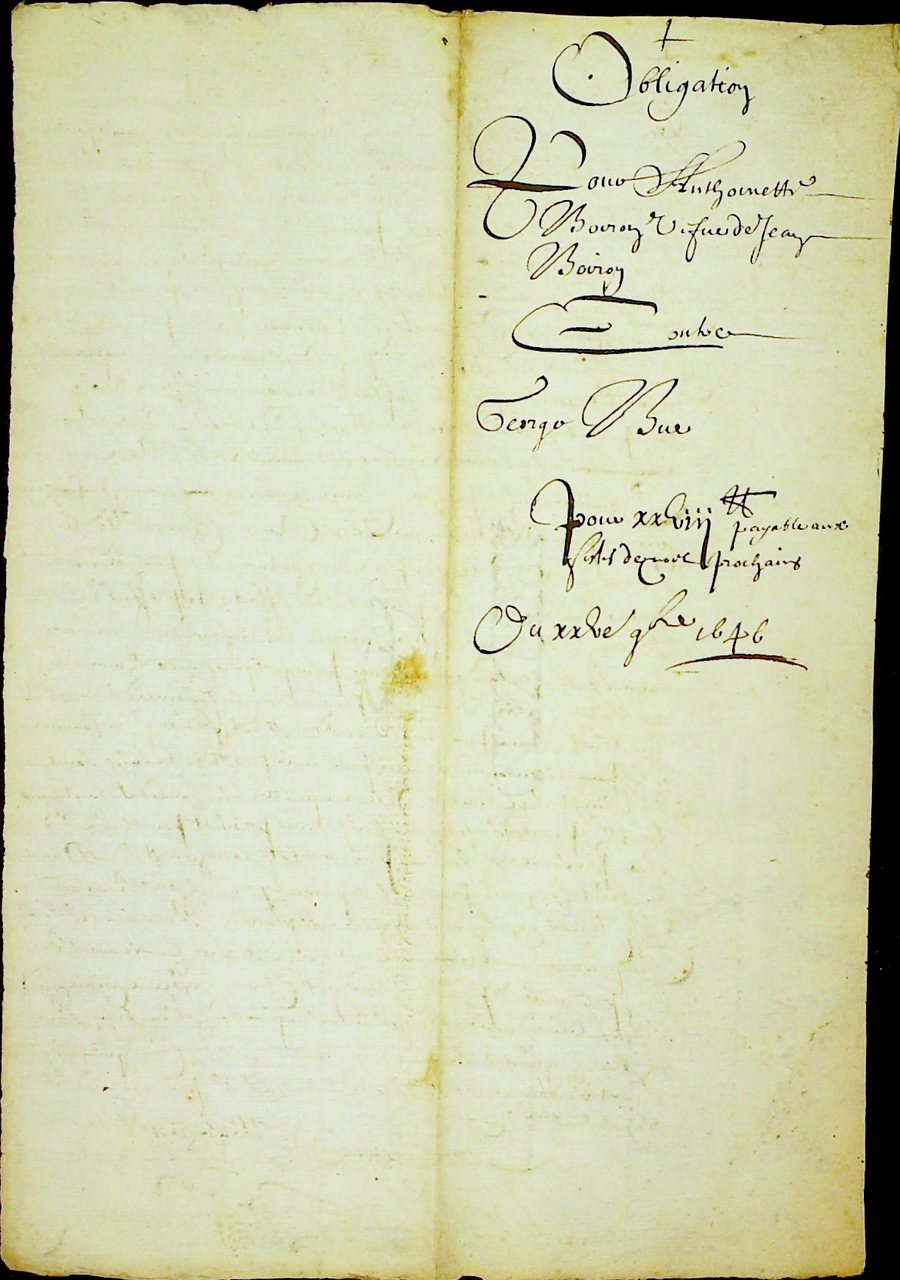 Obligation
Pour Anthoinette
Boiron vefue de Jean
Boiron
Contre
George Bue
pour xxviii ₶ payable aux
festes de noel prochains
Du xxve 9bre 1646